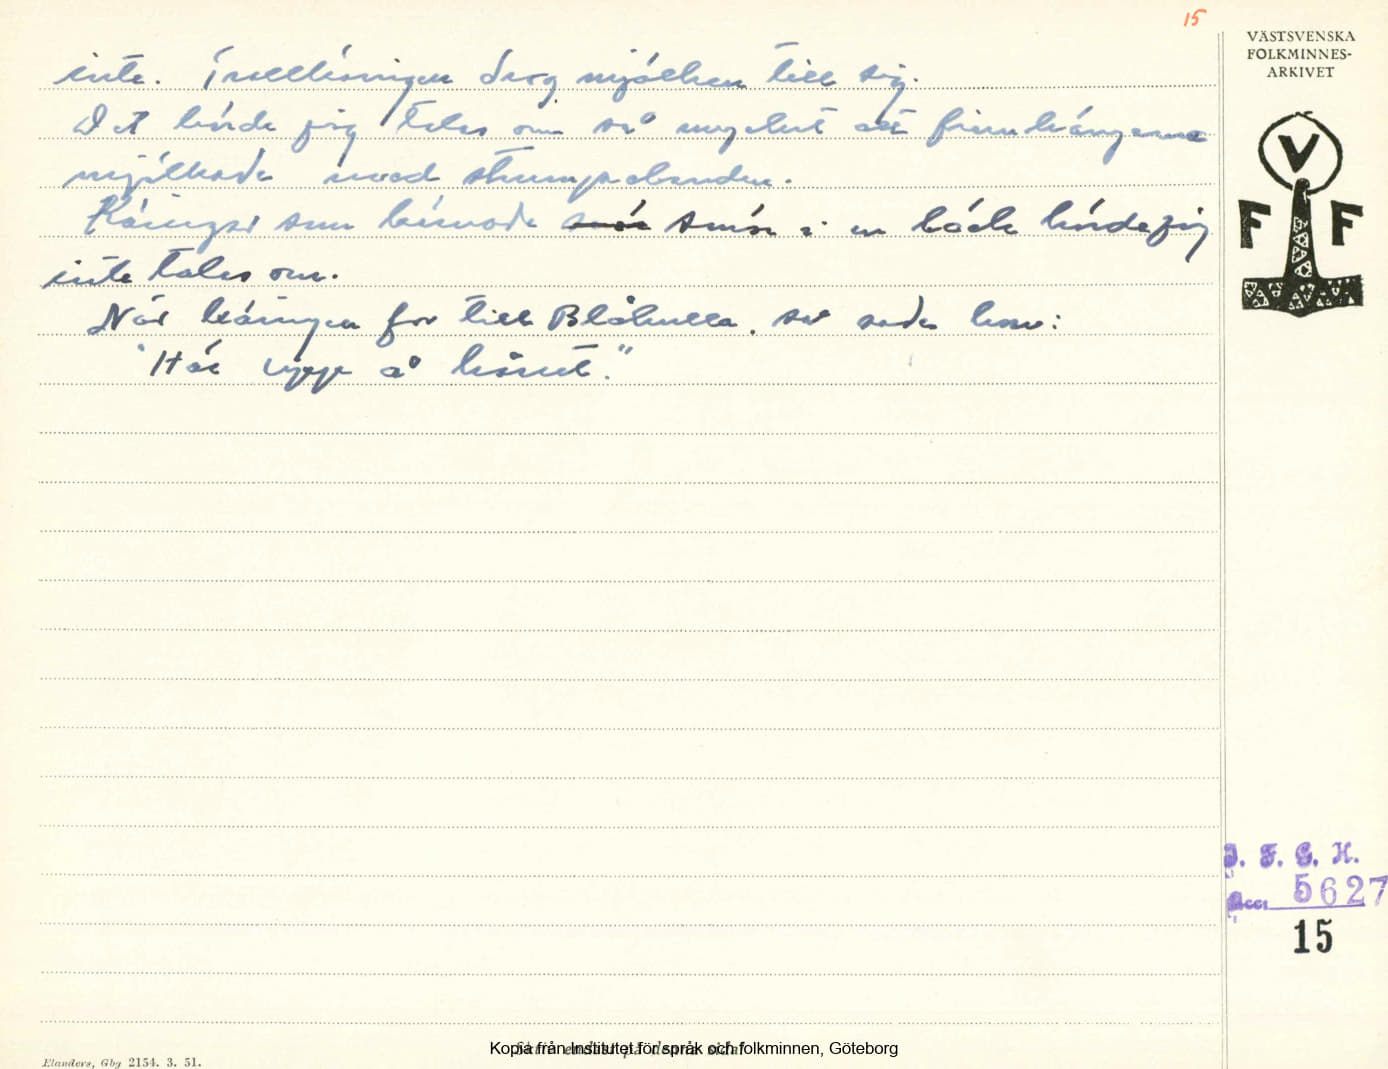 15
VÄSTSVENSKA
FOLKMINNES-
ARKIVET
inte. Trollkäringen drog mjölken till sig.
Det hörde jag talas om så mycket att finnkäringarna
mjölkade med strumpebanden.
Käringar som kärnade smör i en bäck hörde jag
inte talas om.
När käringen for till Blåkulla, så sade hon:
"Här uppe å
V
F F
I. F. G. H.
Acc. 5627
15
Kopia från Institutet för språk och folkminnen, Göteborg
Elanders, Gbg 2154. 3. 51.